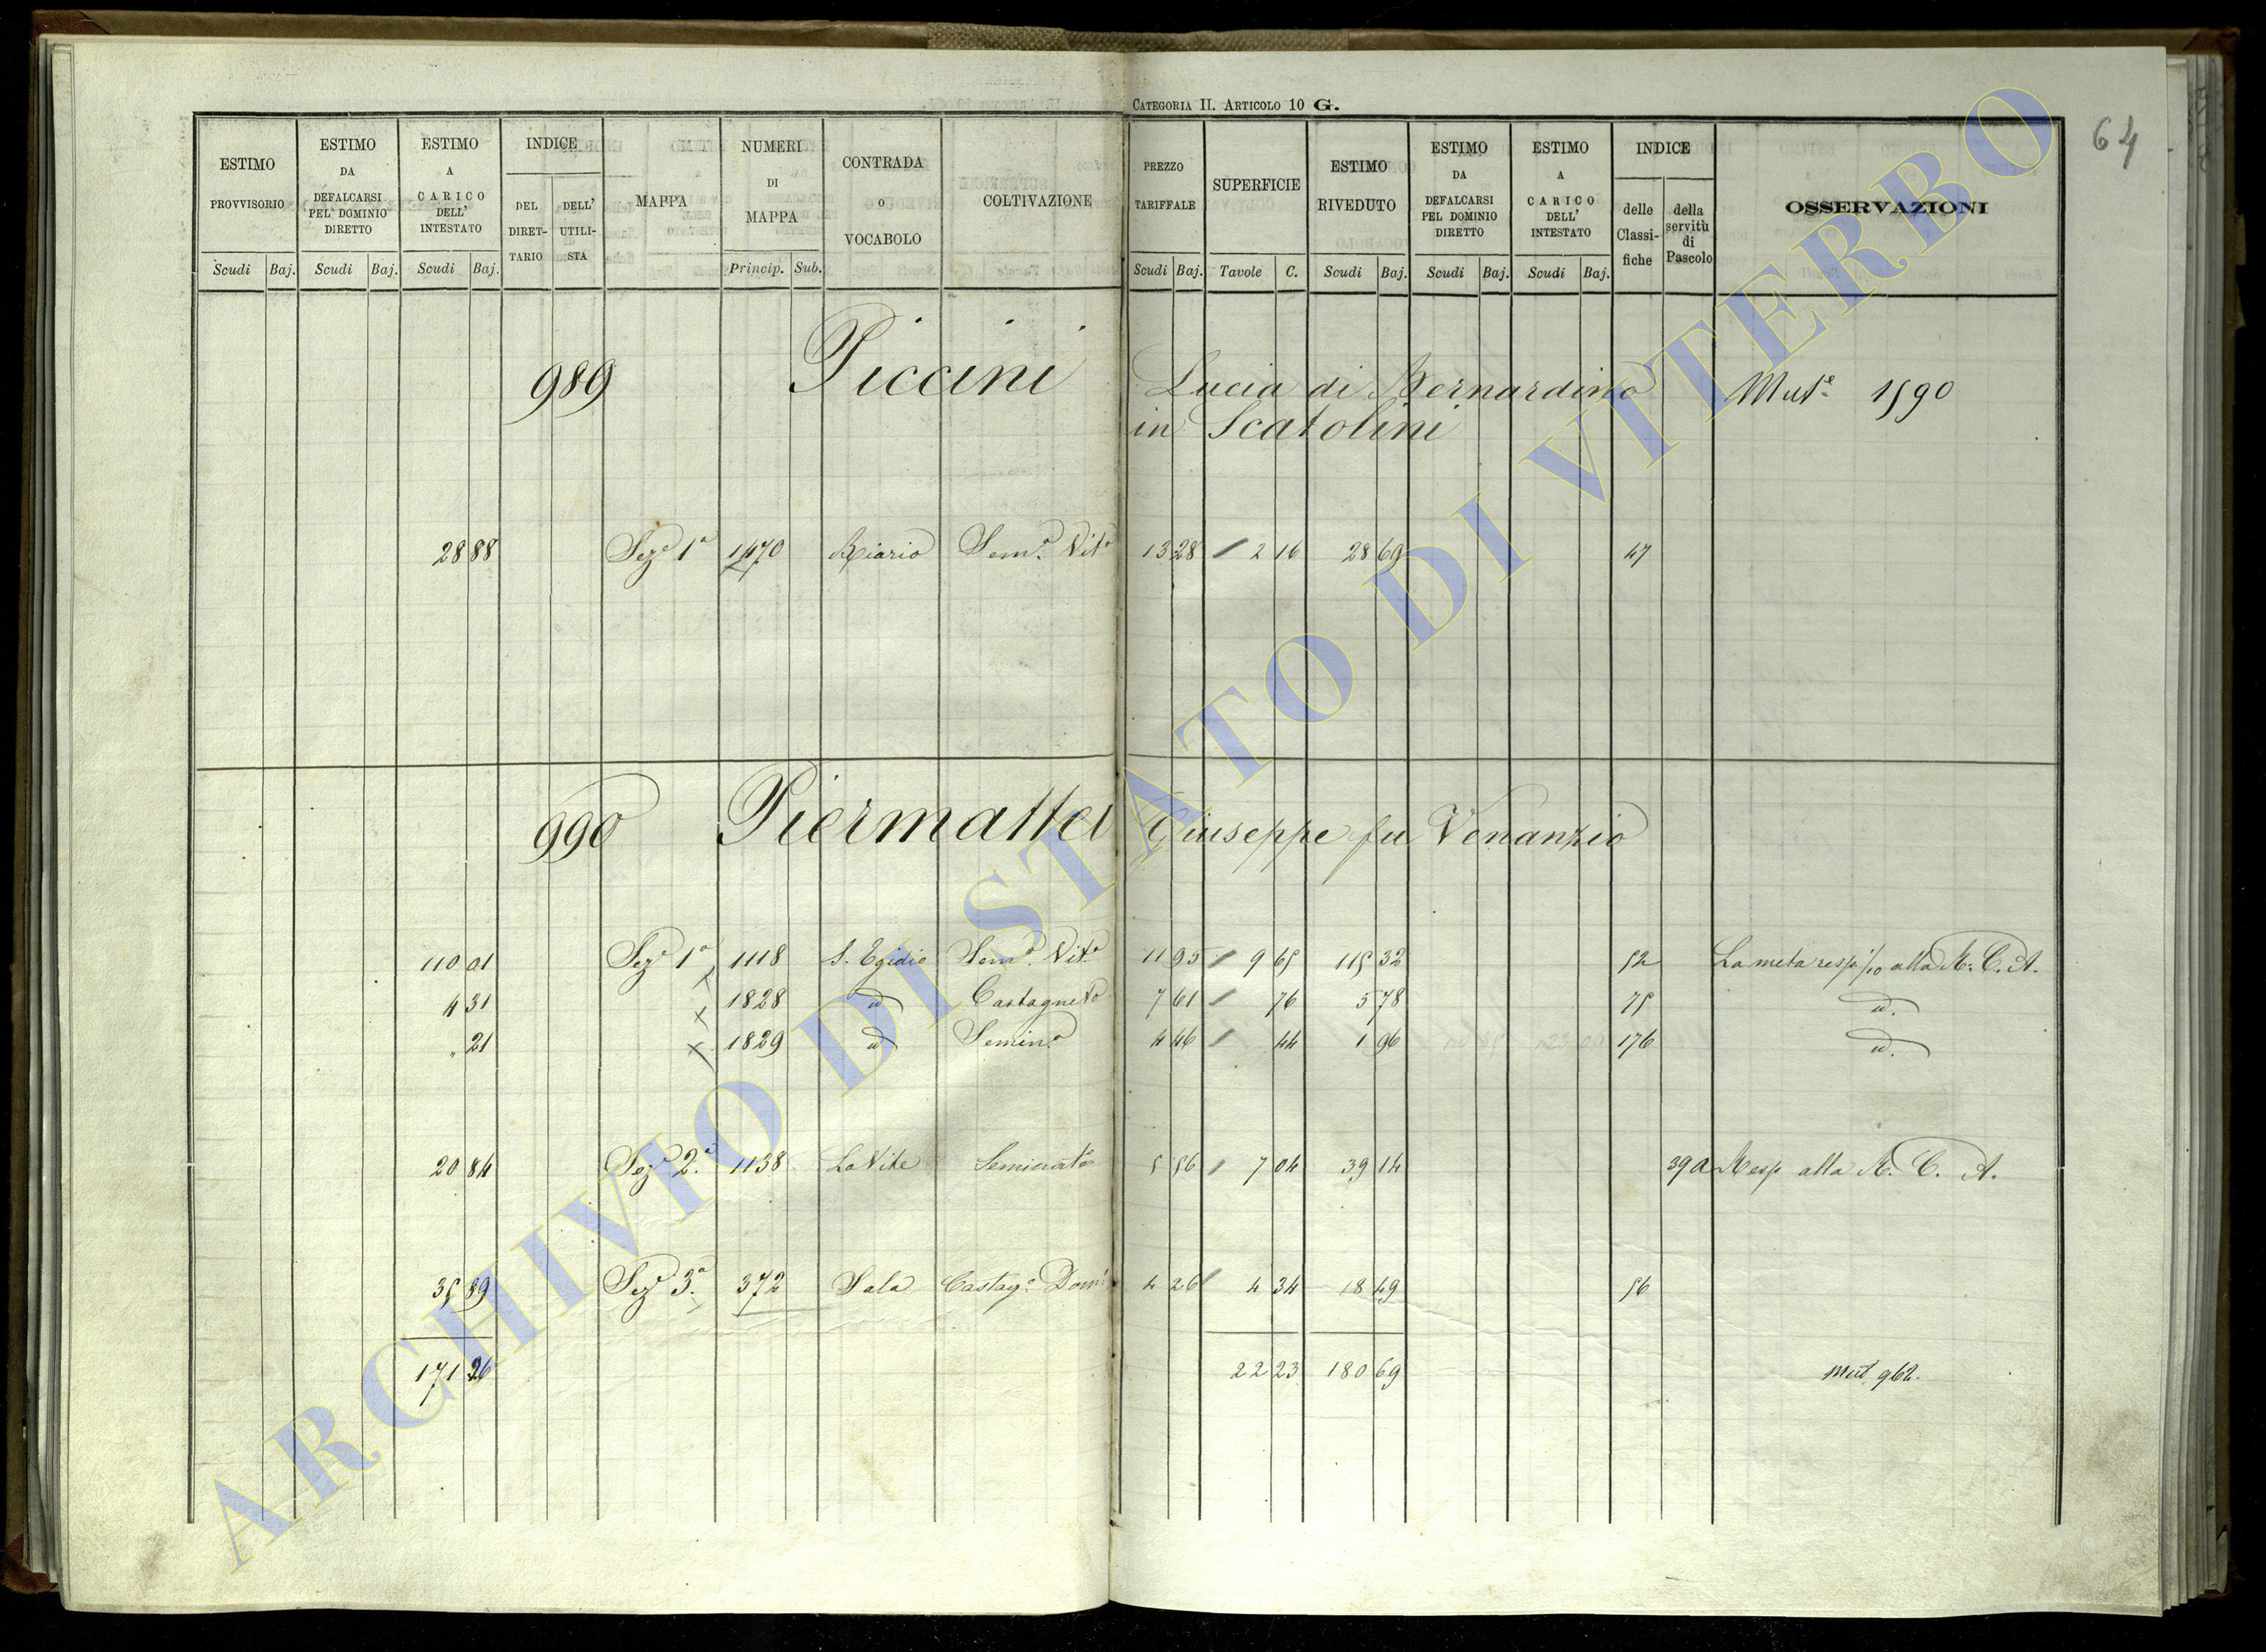 CATEGORIA II. ARTICOLO 10 G.
64
ESTIMO PROVVISORIO Scudi Baj.
ESTIMO DA DEFALCARSI PEL DOMINIO DIRETTO Scudi Baj.
ESTIMO A CARICO DELL' INTESTATO Scudi Baj.
INDICE DEL DIRET-TARIO DELL' UTILI-STA
MAPPA
NUMERI DI MAPPA Princip. Sub.
CONTRADA O VOCABOLO
COLTIVAZIONE
PREZZO TARIFFALE Scudi Baj.
SUPERFICIE Tavole C.
ESTIMO RIVEDUTO Scudi Baj.
ESTIMO DA DEFALCARSI PEL DOMINIO DIRETTO Scudi Baj.
ESTIMO A CARICO DELL' INTESTATO Scudi Baj.
INDICE delle Classi-fiche della servitù di Pascolo
OSSERVAZIONI
989 Piccini Lucia di Bernardino Mut.e 1590
in Scatolini
28 88 Sez.e 1a 1470 Riario Sem.o Vit.o 13 28 2 16 28 69 47
990 Piermattei Giuseppe fu Venanzio
110 01 Sez.e 1a 1118 S. Egidio Sem.o Vit.o 11 95 9 65 115 32 52 La meta resp. 1/10 alla R. C. A.
4 31 1828 id Castagneto 7 61 76 5 78 75 id.
" 21 1829 id Semin.o 4 46 44 1 96 176 id.
20 84 Sez.e 2.a 1138 La Vite Seminato 5 56 7 04 39 14 39 a Resp alla R. C. A.
35 89 Sez.e 3.a 372 Sala Castag.o Dom.o 4 26 4 34 18 49 56
171 26 22 23 180 69 Mut. 962.
ARCHIVIO DI STATO DI VITERBO